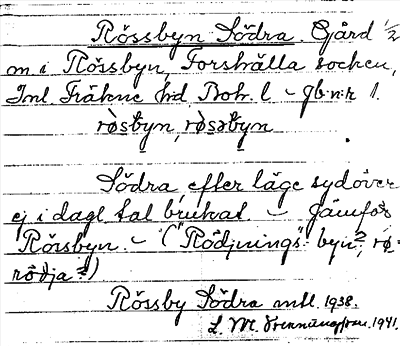 Rössbyn Södra. Gård 1/2
m. i Rössbyn, Forshälla socken,
Inl Fräkne hd Boh. l - gb.n:r 1.
røsbyn, røsəbyn
Södra, efter läge sydöver
ej i dagl. tal brukat - Jämför
Rössbyn. - ("Rödjnings"- byn?, rø-
rödja?)
Rössby Södra mtl. 1938.
L. M. 1941.